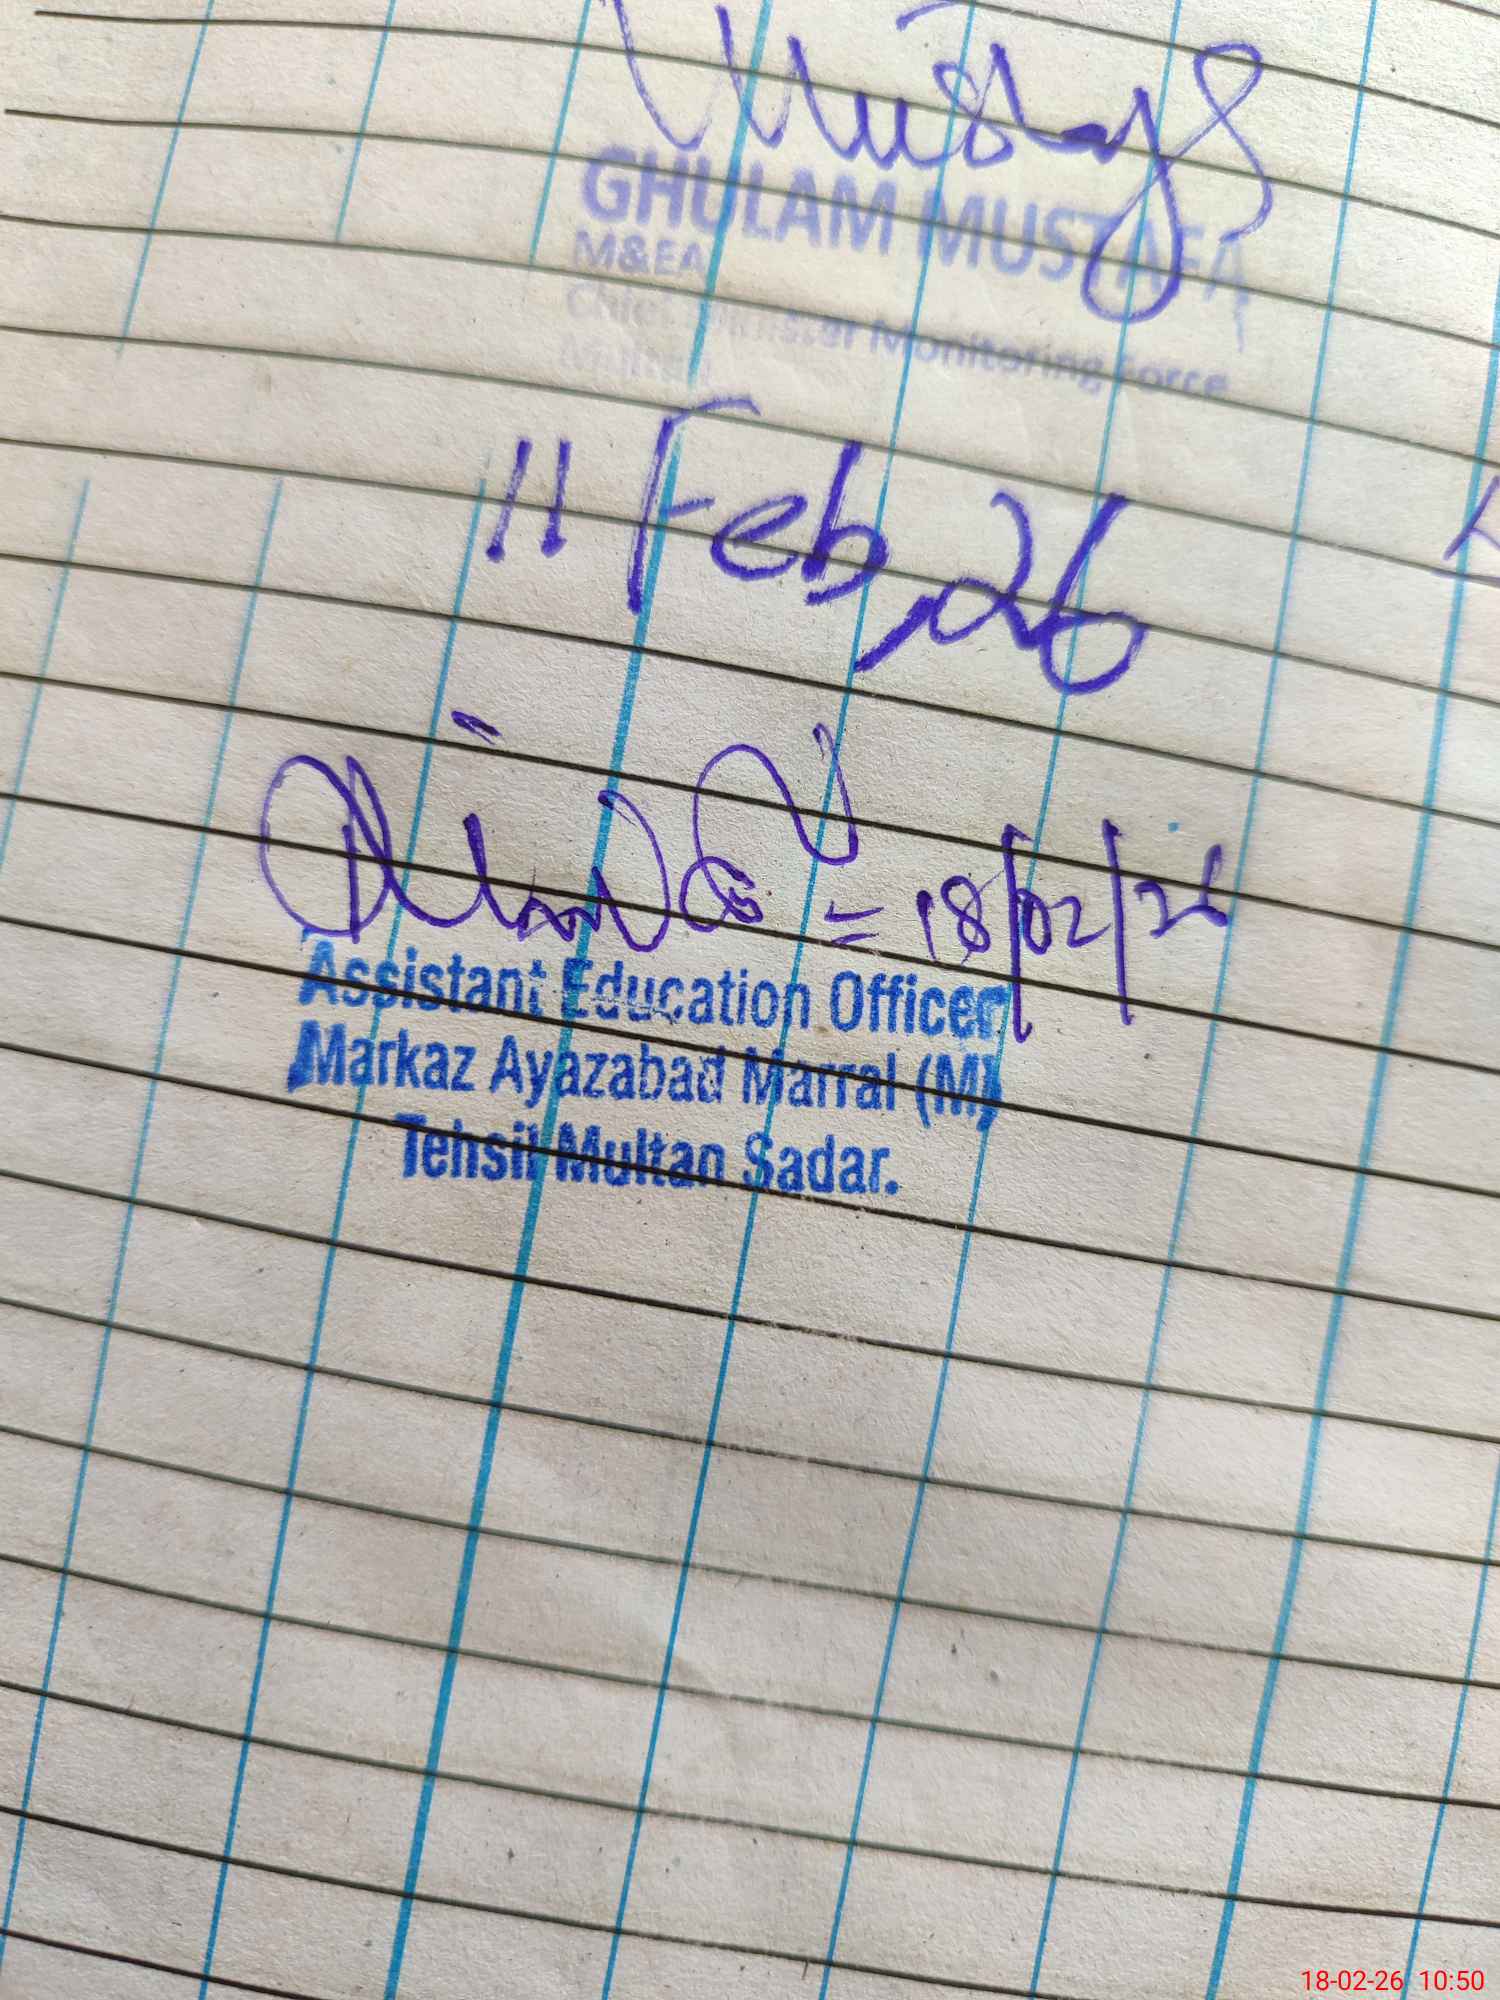 GHULAM MUSTAFA
M&EA
Chief Minister Monitoring Force
Multan
11 Feb, 26
= 18/02/26
Assistant Education Officer
Markaz Ayazabad Marral (M)
Tehsil Multan Sadar.
18-02-26 10:50